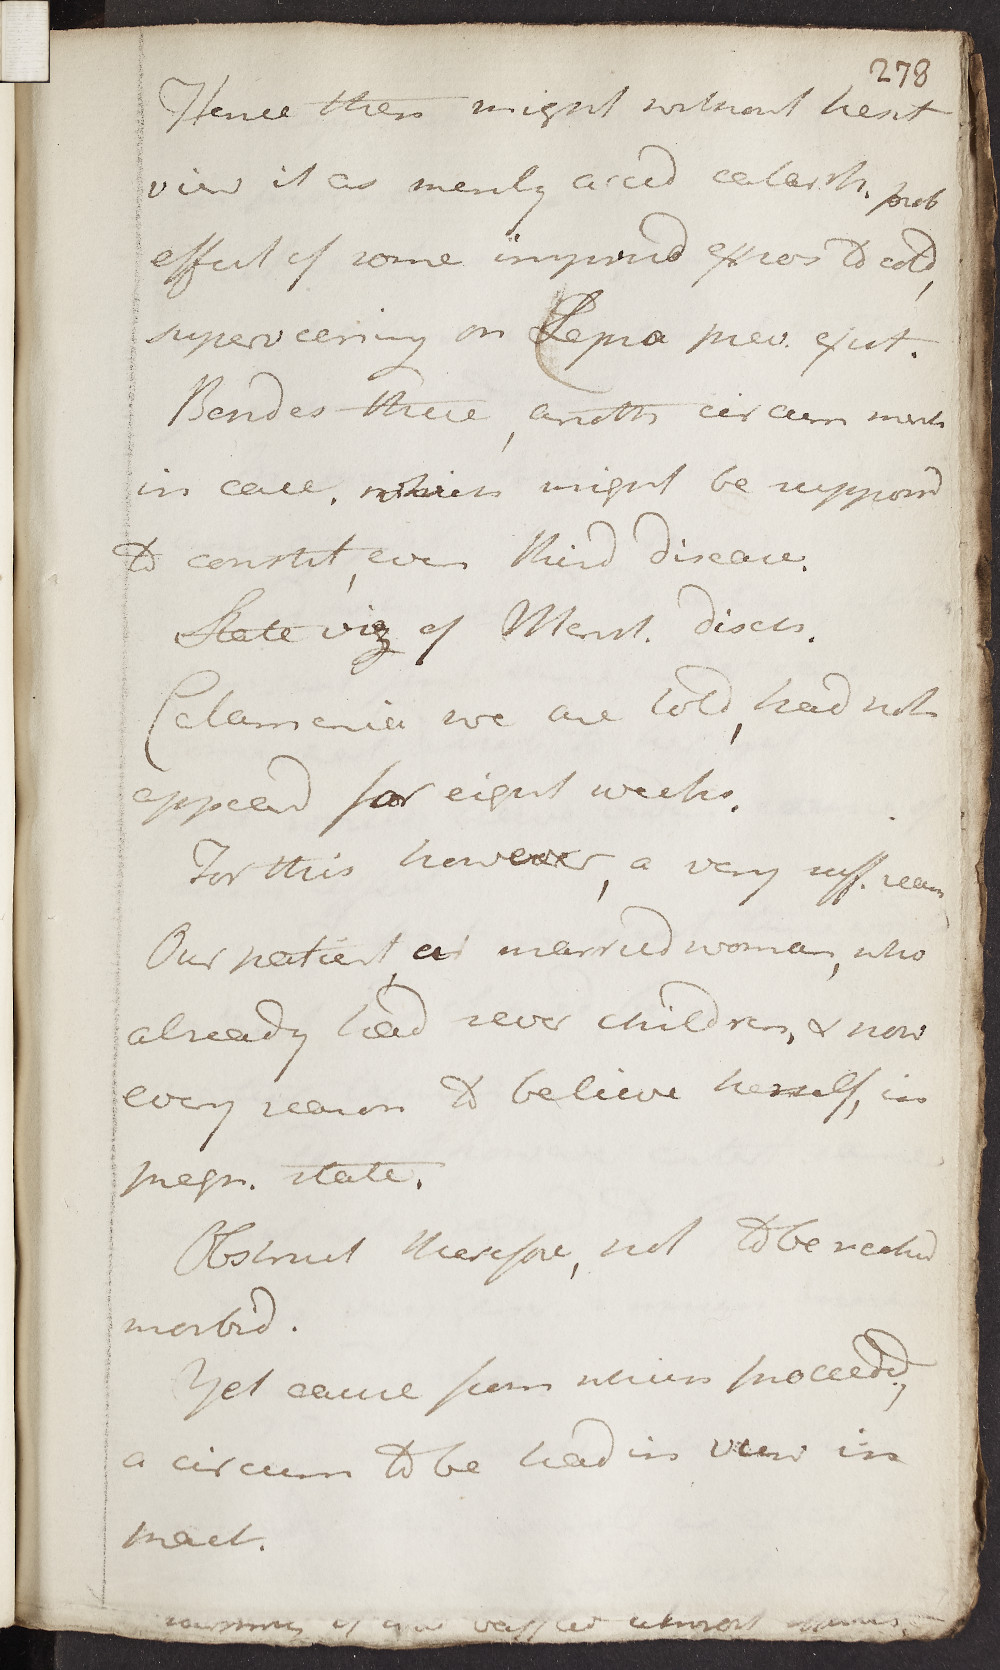 278
Hence then might without hesit
view it as merely accid catarrh. prob
effect of some impruᵈ expos to cold,
supervening on Lepra prev. exist.
Besides these, anoth circum ment
in case, which might be supposd
to constit, even third disease.
State viz of Menst. disch.
Catamenia we are told, had not
appeard for eight weeks.
For this however, a very suff. reason
Our patient, a married woman, who
already had sever children, & now
every reason to believe herself, in
pregn. state.
Obstruct therefore, not to be reckd
morbid.
Yet cause from which proceedd,
a circum to be had in view in
pract.